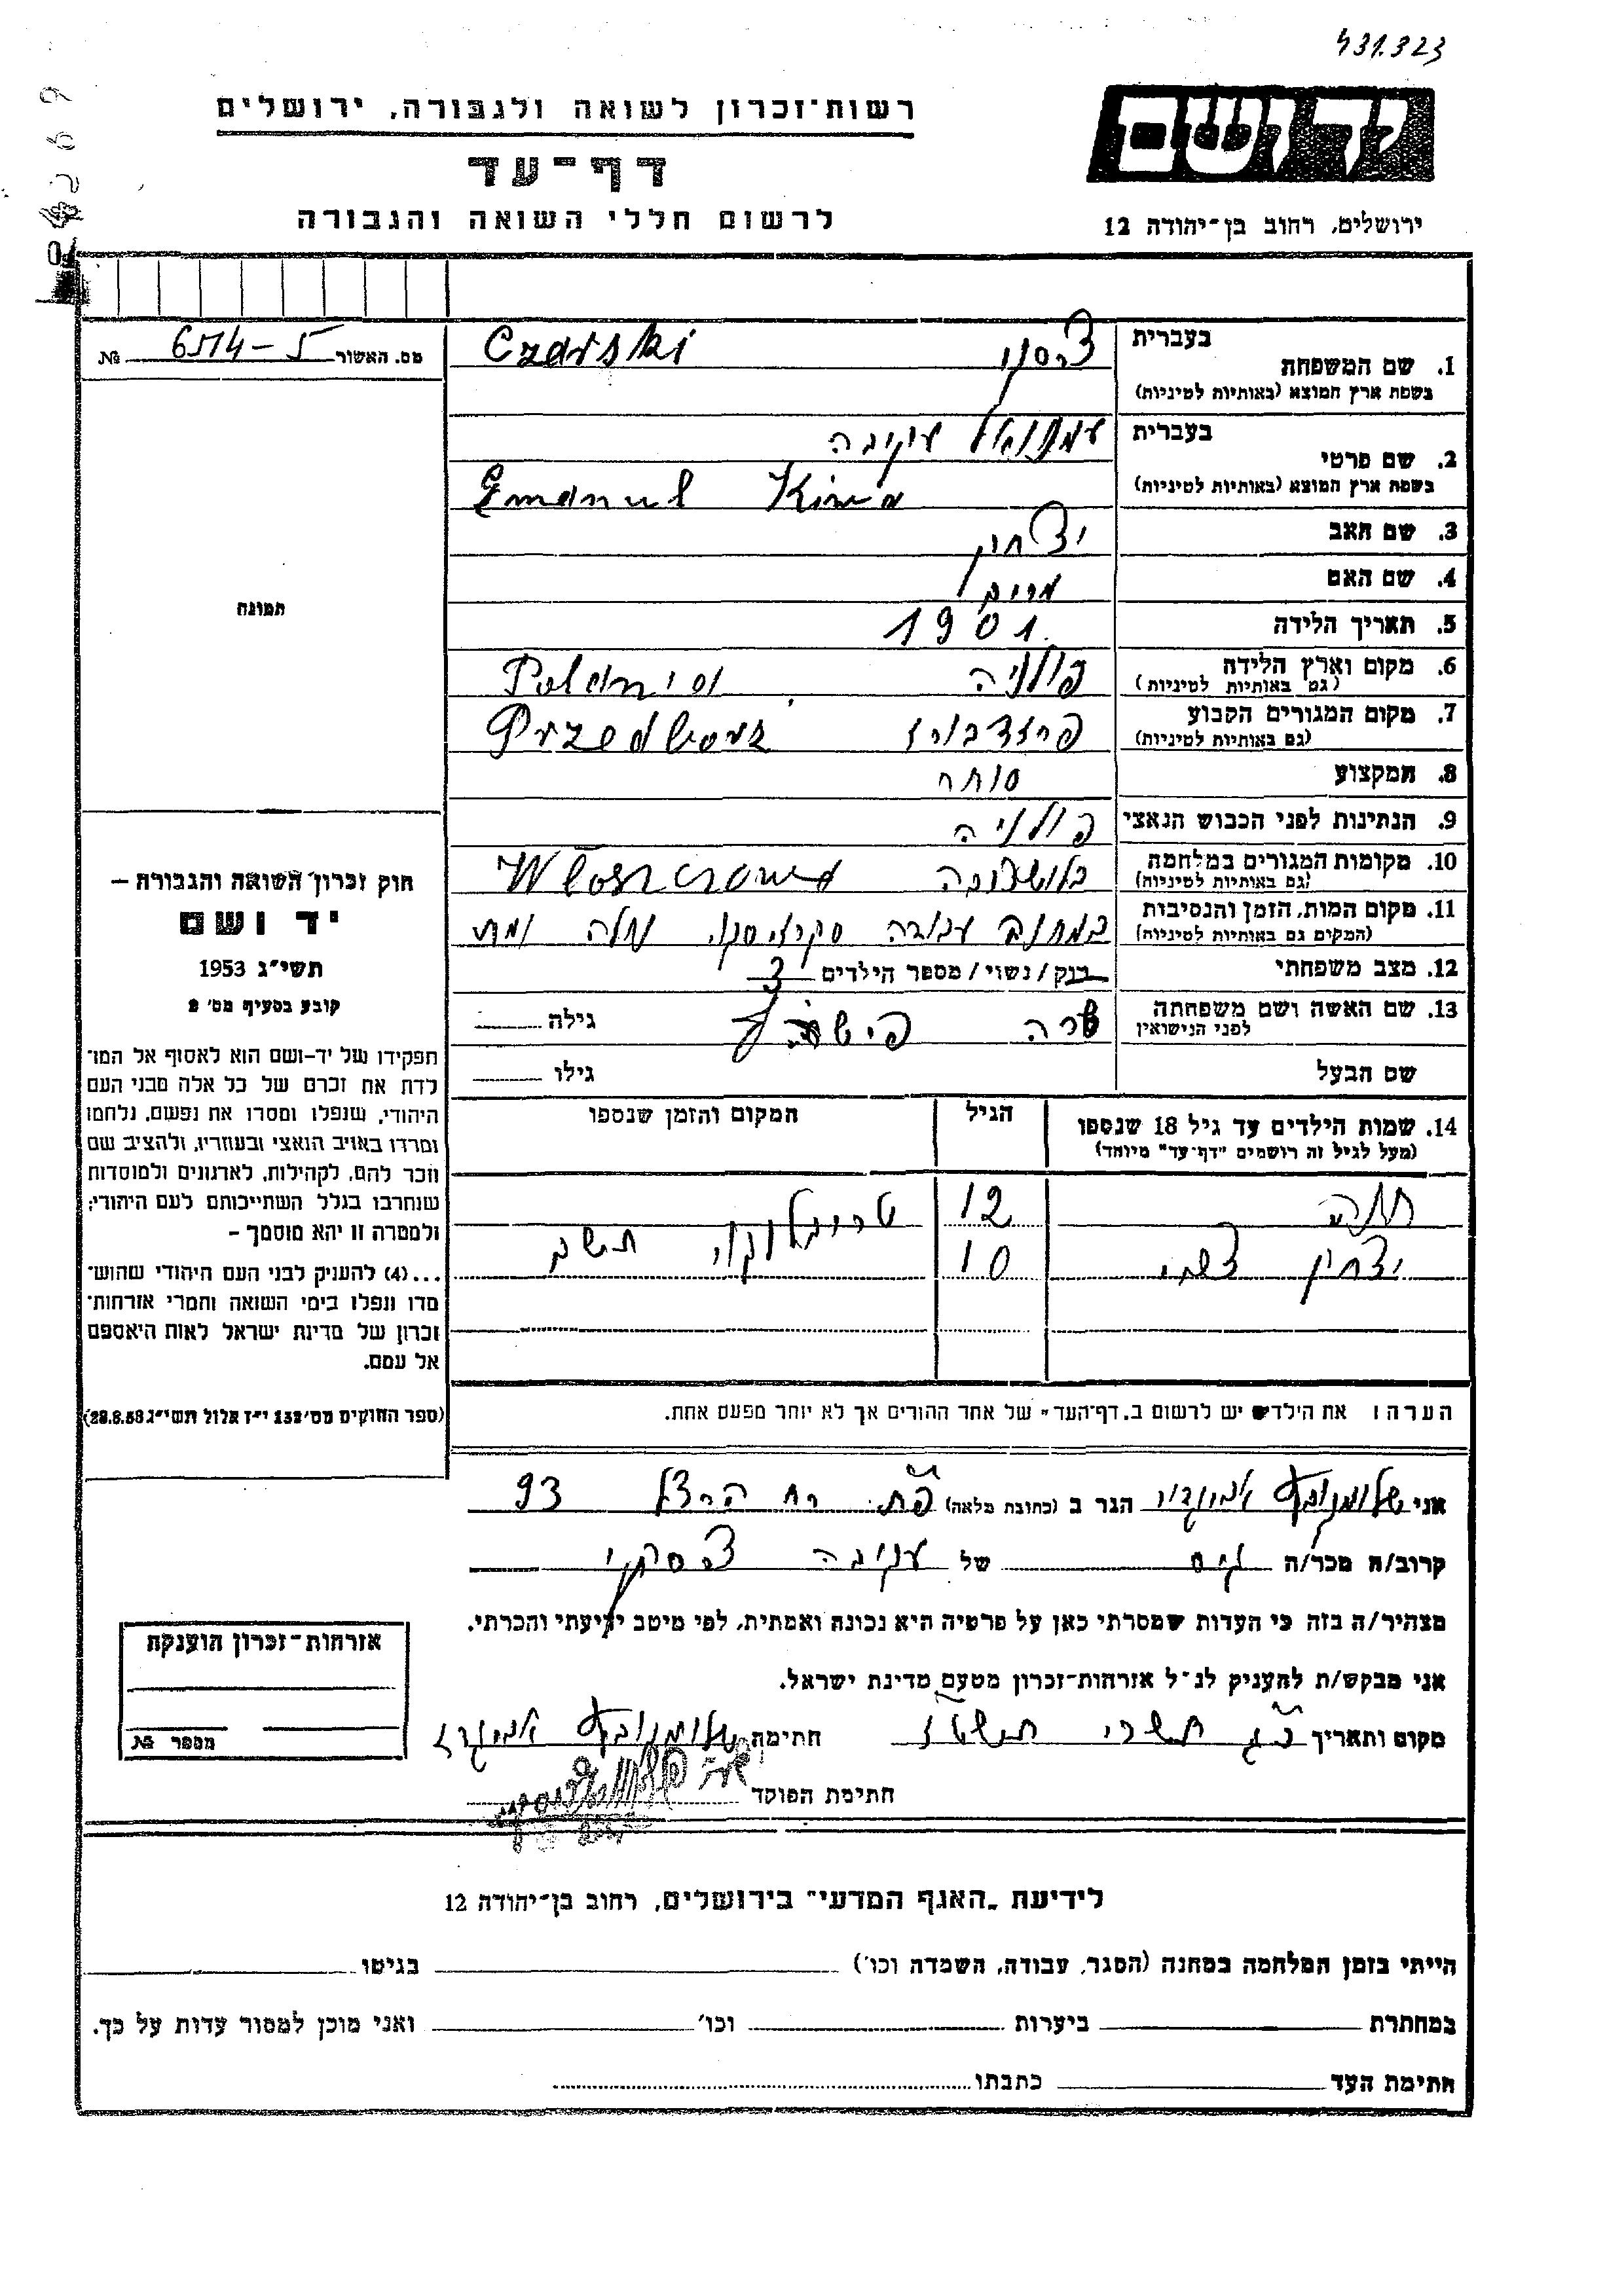 431.323
יד ושם
רשות־זכרון לשואה ולגבורה, ירושלים
דף־עד
לרשום חללי השואה והגבורה
ירושלים, רחוב בן־יהודה 12
מס. האשור 6514-5 №
1. שם המשפחה
בעברית צרסקי Czarski
בשפת ארץ המוצא (באותיות לטיניות)
2. שם פרטי
בעברית עמנואל עקיבה
בשפת ארץ המוצא (באותיות לטיניות) Emanuel Kiwa
3. שם האב יצחק
4. שם האם מרים
5. תאריך הלידה 1901
6. מקום וארץ הלידה פולניה
(גם באותיות לטיניות)
7. מקום המגורים הקבוע פרזדבורז
(גם באותיות לטיניות)
8. המקצוע סוחר
9. הנתינות לפני הכבוש הנאצי פולניה
10. מקומות המגורים במלחמה
(גם באותיות לטיניות)
11. מקום המות, הזמן והנסיבות במחנה עבודה חלה ומת
(המקום גם באותיות לטיניות)
12. מצב משפחתי רוק / נשוי / מספר הילדים 3
13. שם האשה ושם משפחתה שרה גילה
לפני הנישואין
שם הבעל גילו
14. שמות הילדים עד גיל 18 שנספו הגיל המקום והזמן שנספו
(מעל לגיל זה רושמים "דף־עד" מיוחד)
חנה 12 טרובלינקה תש"ב
יצחק צבי 10
הערה: את הילדים יש לרשום ב„דף־העד" של אחד ההורים אך לא יותר מפעם אחת.
תמונה
חוק זכרון השואה והגבורה –
יד ושם
תשי"ג 1953
קובע בסעיף מס' 2
תפקידו של יד-ושם הוא לאסוף אל המו־
לדת את זכרם של כל אלה מבני העם
היהודי, שנפלו ומסרו את נפשם, נלחמו
ומרדו באויב הנאצי ובעוזריו, ולהציב שם
וזכר להם, לקהילות, לארגונים ולמוסדות
שנחרבו בגלל השתייכותם לעם היהודי;
ולמטרה זו יהא מוסמך –
...(4) להעניק לבני העם היהודי שהוש־
מדו ונפלו בימי השואה והמרי אזרחות־
זכרון של מדינת ישראל לאות היאספם
אל עמם.
(ספר החוקים מס' 132 י"ז אלול תשי"ג 28.8.53)
אני אביגדור הגר ב (כתובת מלאה) פ"ת רח הרצל 93
קרוב/ה מכר/ה גיס של עקיבה צרסקי
מצהיר/ה בזה כי העדות שמסרתי כאן על פרטיה היא נכונה ואמתית, לפי מיטב ידיעתי והכרתי.
אני מבקש/ת להעניק לנ"ל אזרחות־זכרון מטעם מדינת ישראל.
מקום ותאריך כ"ג תשרי תשט"ז חתימה אביגדור
חתימת הפוקד
אזרחות־זכרון הוענקה
מספר №
לידיעת „האגף המדעי" בירושלים, רחוב בן־יהודה 12
הייתי בזמן המלחמה במחנה (הסגר, עבודה, השמדה וכו') בגיטו
במחתרת ביערות וכו' ואני מוכן למסור עדות על כך.
חתימת העד כתבתו